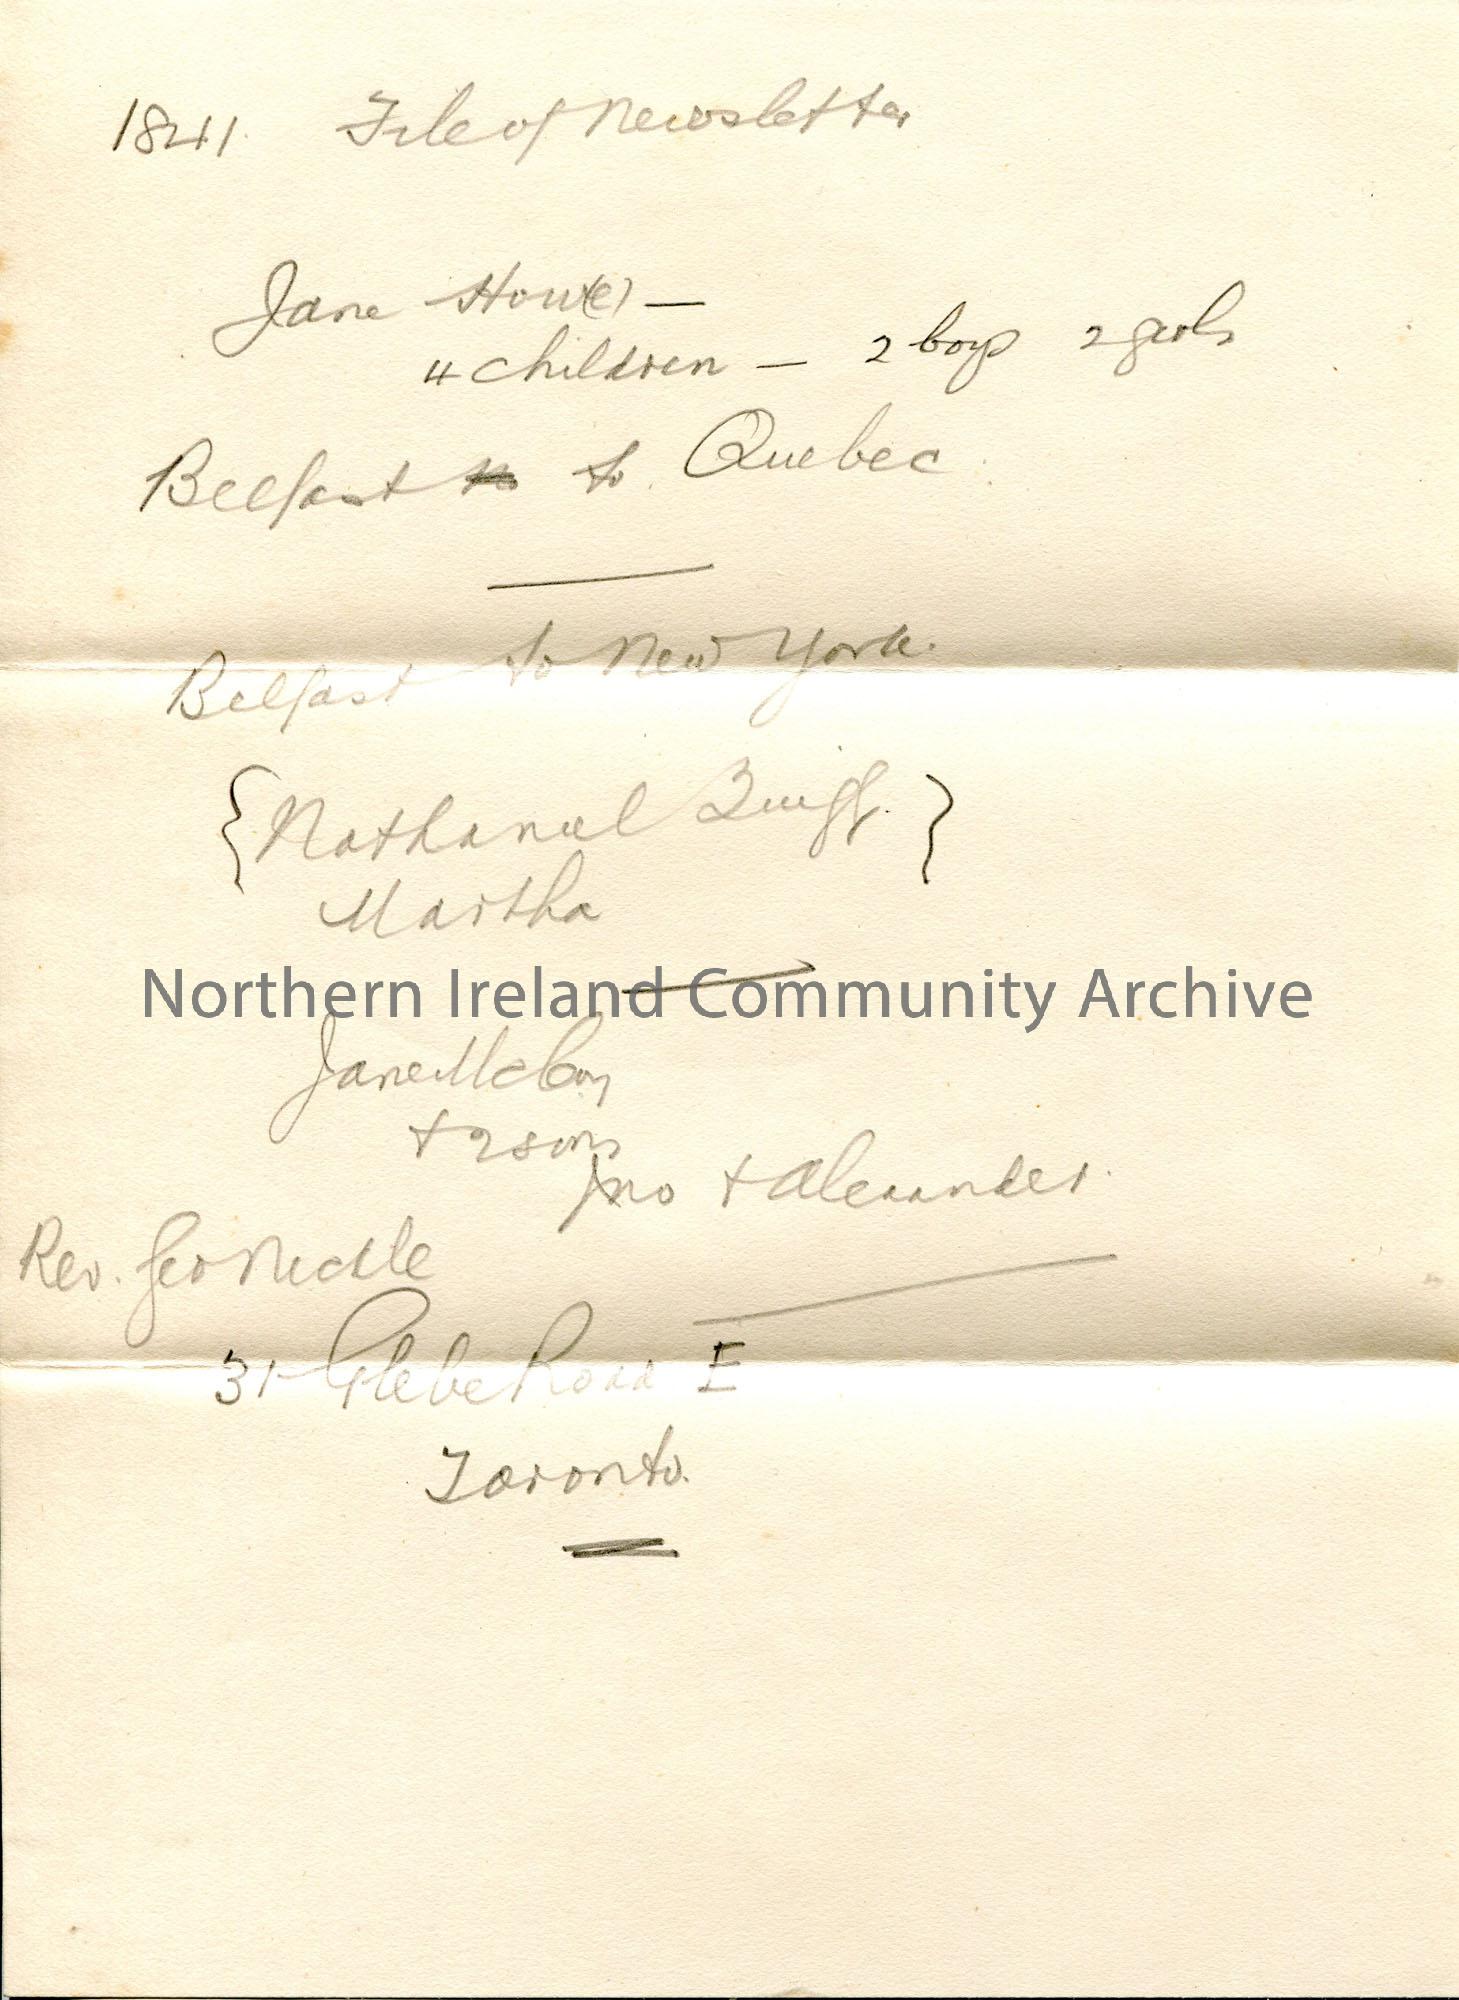 1841. File of Newsletter
Jane How(e) —
4 children — 2 boys 2 girls
Belfast to Quebec.
Belfast to New York.
{Nathaniel Quigg.}
Martha
Northern Ireland Community Archive
Jane McCoy
+ 2 sons
Jno + Alexander.
Rev. Geo
31 Glebe Road E
Toronto.